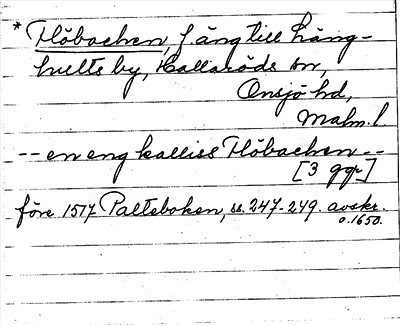 * Flöbachen, f. äng till Häng-
hults by, Hallaröds sn,
Onsjö hd,
Malm. l.
-- en eng kalliss Flöbachen --
[3 ggr]
före 1517 Palteboken, ss. 247-249. avskr.
o. 1650.